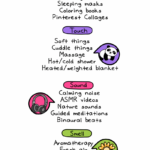 Sleeping masks
Coloring books
Pinterest Collages
Touch
Soft things
Cuddle things
Massage
Hot/cold shower
Heated/weighted blanket
Sound
Calming noise
ASMR videos
Nature sounds
Guided meditations
Binaural beats
Smell
Aromatherapy